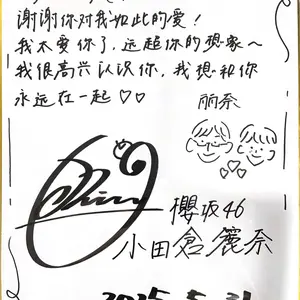 谢谢你对我如此的爱!
我太爱你了,远超你的想象~
我很高兴认识你,我想和你
永远在一起♡♡
丽奈
櫻坂46
小田倉麗奈
2025.5.31